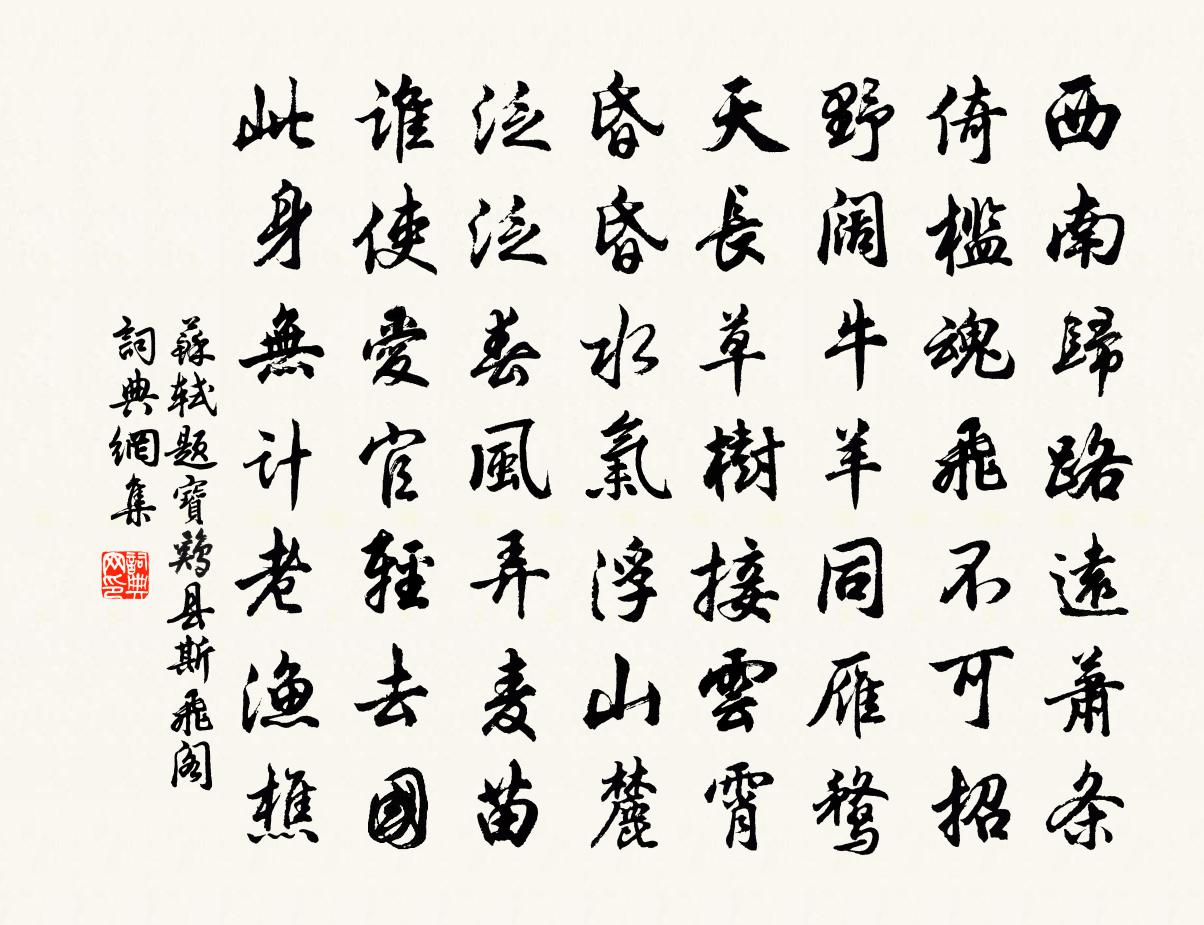 西南歸路遠蕭条
倚檻魂飛不可招
野闊牛羊同雁鶩
天長草樹接雲霄
昏昏水氣浮山麓
泛泛春風弄麦苗
誰使愛官輕去國
此身無计老漁樵
蘇轼題寶鷄县斯飛阁
詞典網集
詞典网印